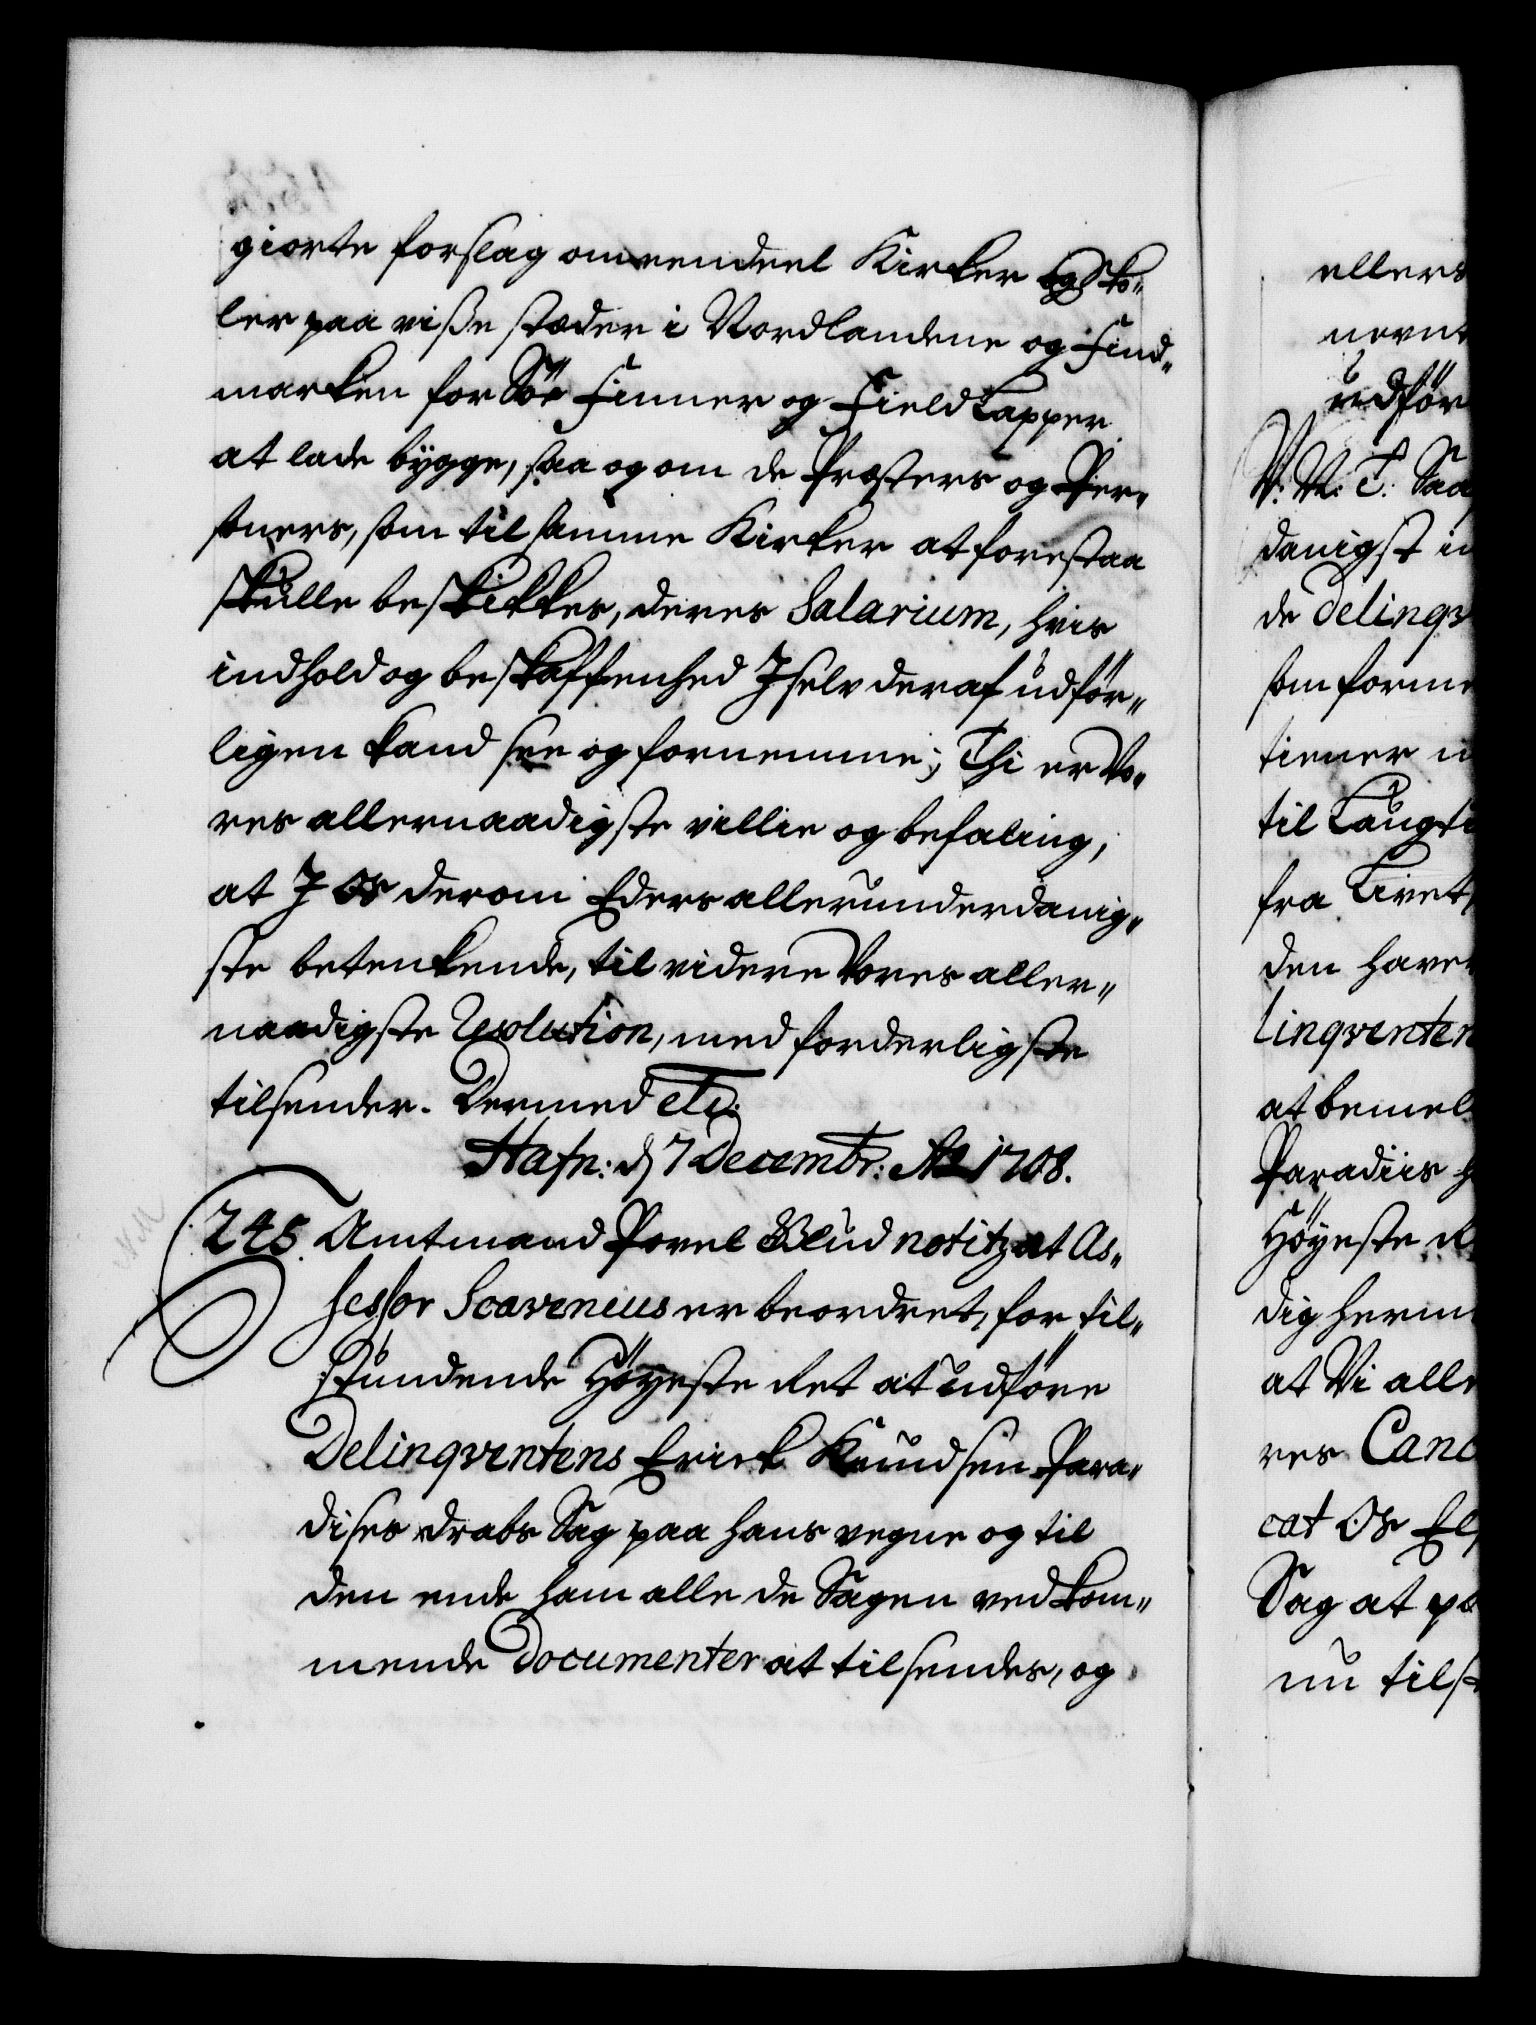 giorte forslag om eendeel Kirker og Sko„
ler paa visse stæder i Nordlandene og Find„
marken for Söe Finner og Field Lapper
at lade bygge, saa og om de Præsters og Per„
soners, som til samme Kirker at forestaa
skulle beskikkes, deres Salarium, hvis
indhold og beskaffenhed I selv deraf udför„
ligen kand see og fornemme; Thi er Vo„
res allernaadigste villie og befaling,
at I Os derom Eders allerunderdanig„
ste betenkende, til videre Vores aller„
naadigste Resolution, med forderligste
tilsender. Dermed etc:
Hafn: d 7 Decembr: Ao 1708.
245. Amtmand Povel Blud notitz at As„
sessor Scavenius er beordret, for til„
stundende Höyeste Ret at udföre
Delinqventens Erick Knudsen Para„
dises drabs Sag paa hans vegne og til
den ende ham alle de Sagen vedkom„
mende Documenter at tilsendes, og
ellers
nevnt
udför
V. M. T. Saa
danigst in
de Delinqv
som forme
tiener
til Laugti
fra Livet
den have
linqventen
at bemel
Paradiis h
Höyeste R
dig herm
at Vi alle
res Canc
cat Os El
Sag at p
nu tilst